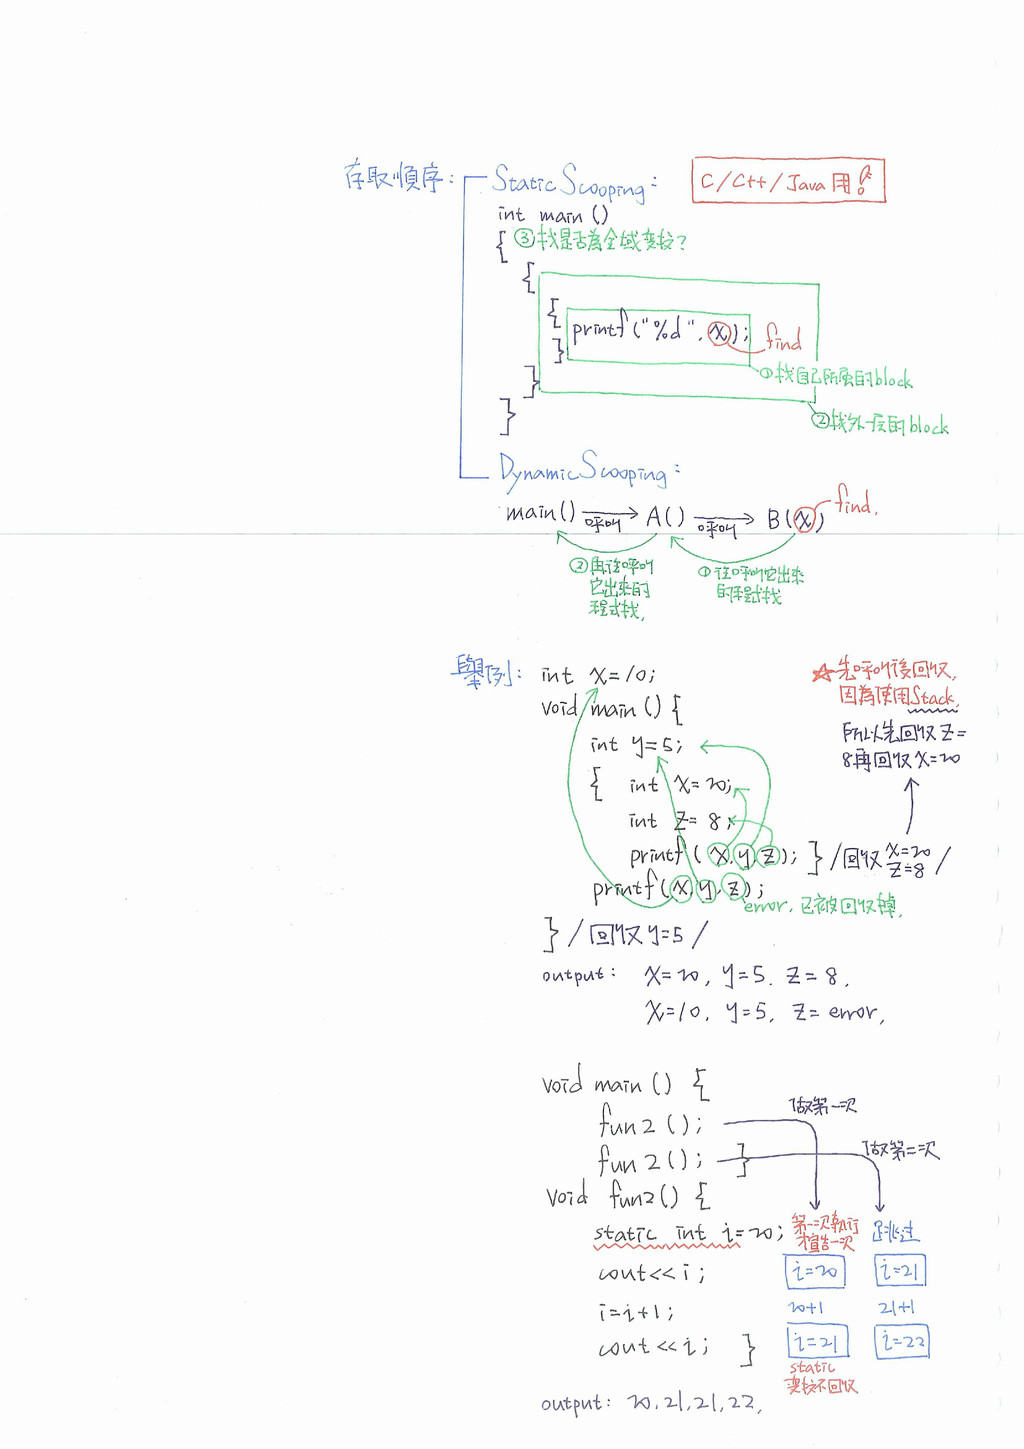 存取順序: StaticScooping:
C/C++/Java用!
int main()
{ ③找是否為全域变数?
{
{
printf("%d", x); find
}
①找自己所屬的block
}
②找外一层的block
}
DynamicScooping:
main() 呼叫 A() 呼叫 B(x) find.
②再往呼叫
它出來的
程式找.
①往呼叫它出來
的程式找
舉例: int x=10;
void main() {
int y=5;
{ int x=20;
int z=8;
printf(x,y,z); } /回收 x=20
z=8 /
printf(x,y,z);
error, 已被回收掉.
} /回收y=5/
☆先呼叫後回收,
因為使用Stack.
所以先回收z=
8再回收x=20
output: x=20, y=5. z=8.
x=10. y=5. z=error.
void main() {
fun2(); 做第一次
fun2(); } 做第二次
void fun2() {
static int i=20; 第一次執行
才宣告一次 跳过
cout<<i; i=20 i=21
i=i+1; 20+1 21+1
cout<<i; } i=21 i=22
static
变数不回收
output: 20,21,21,22.